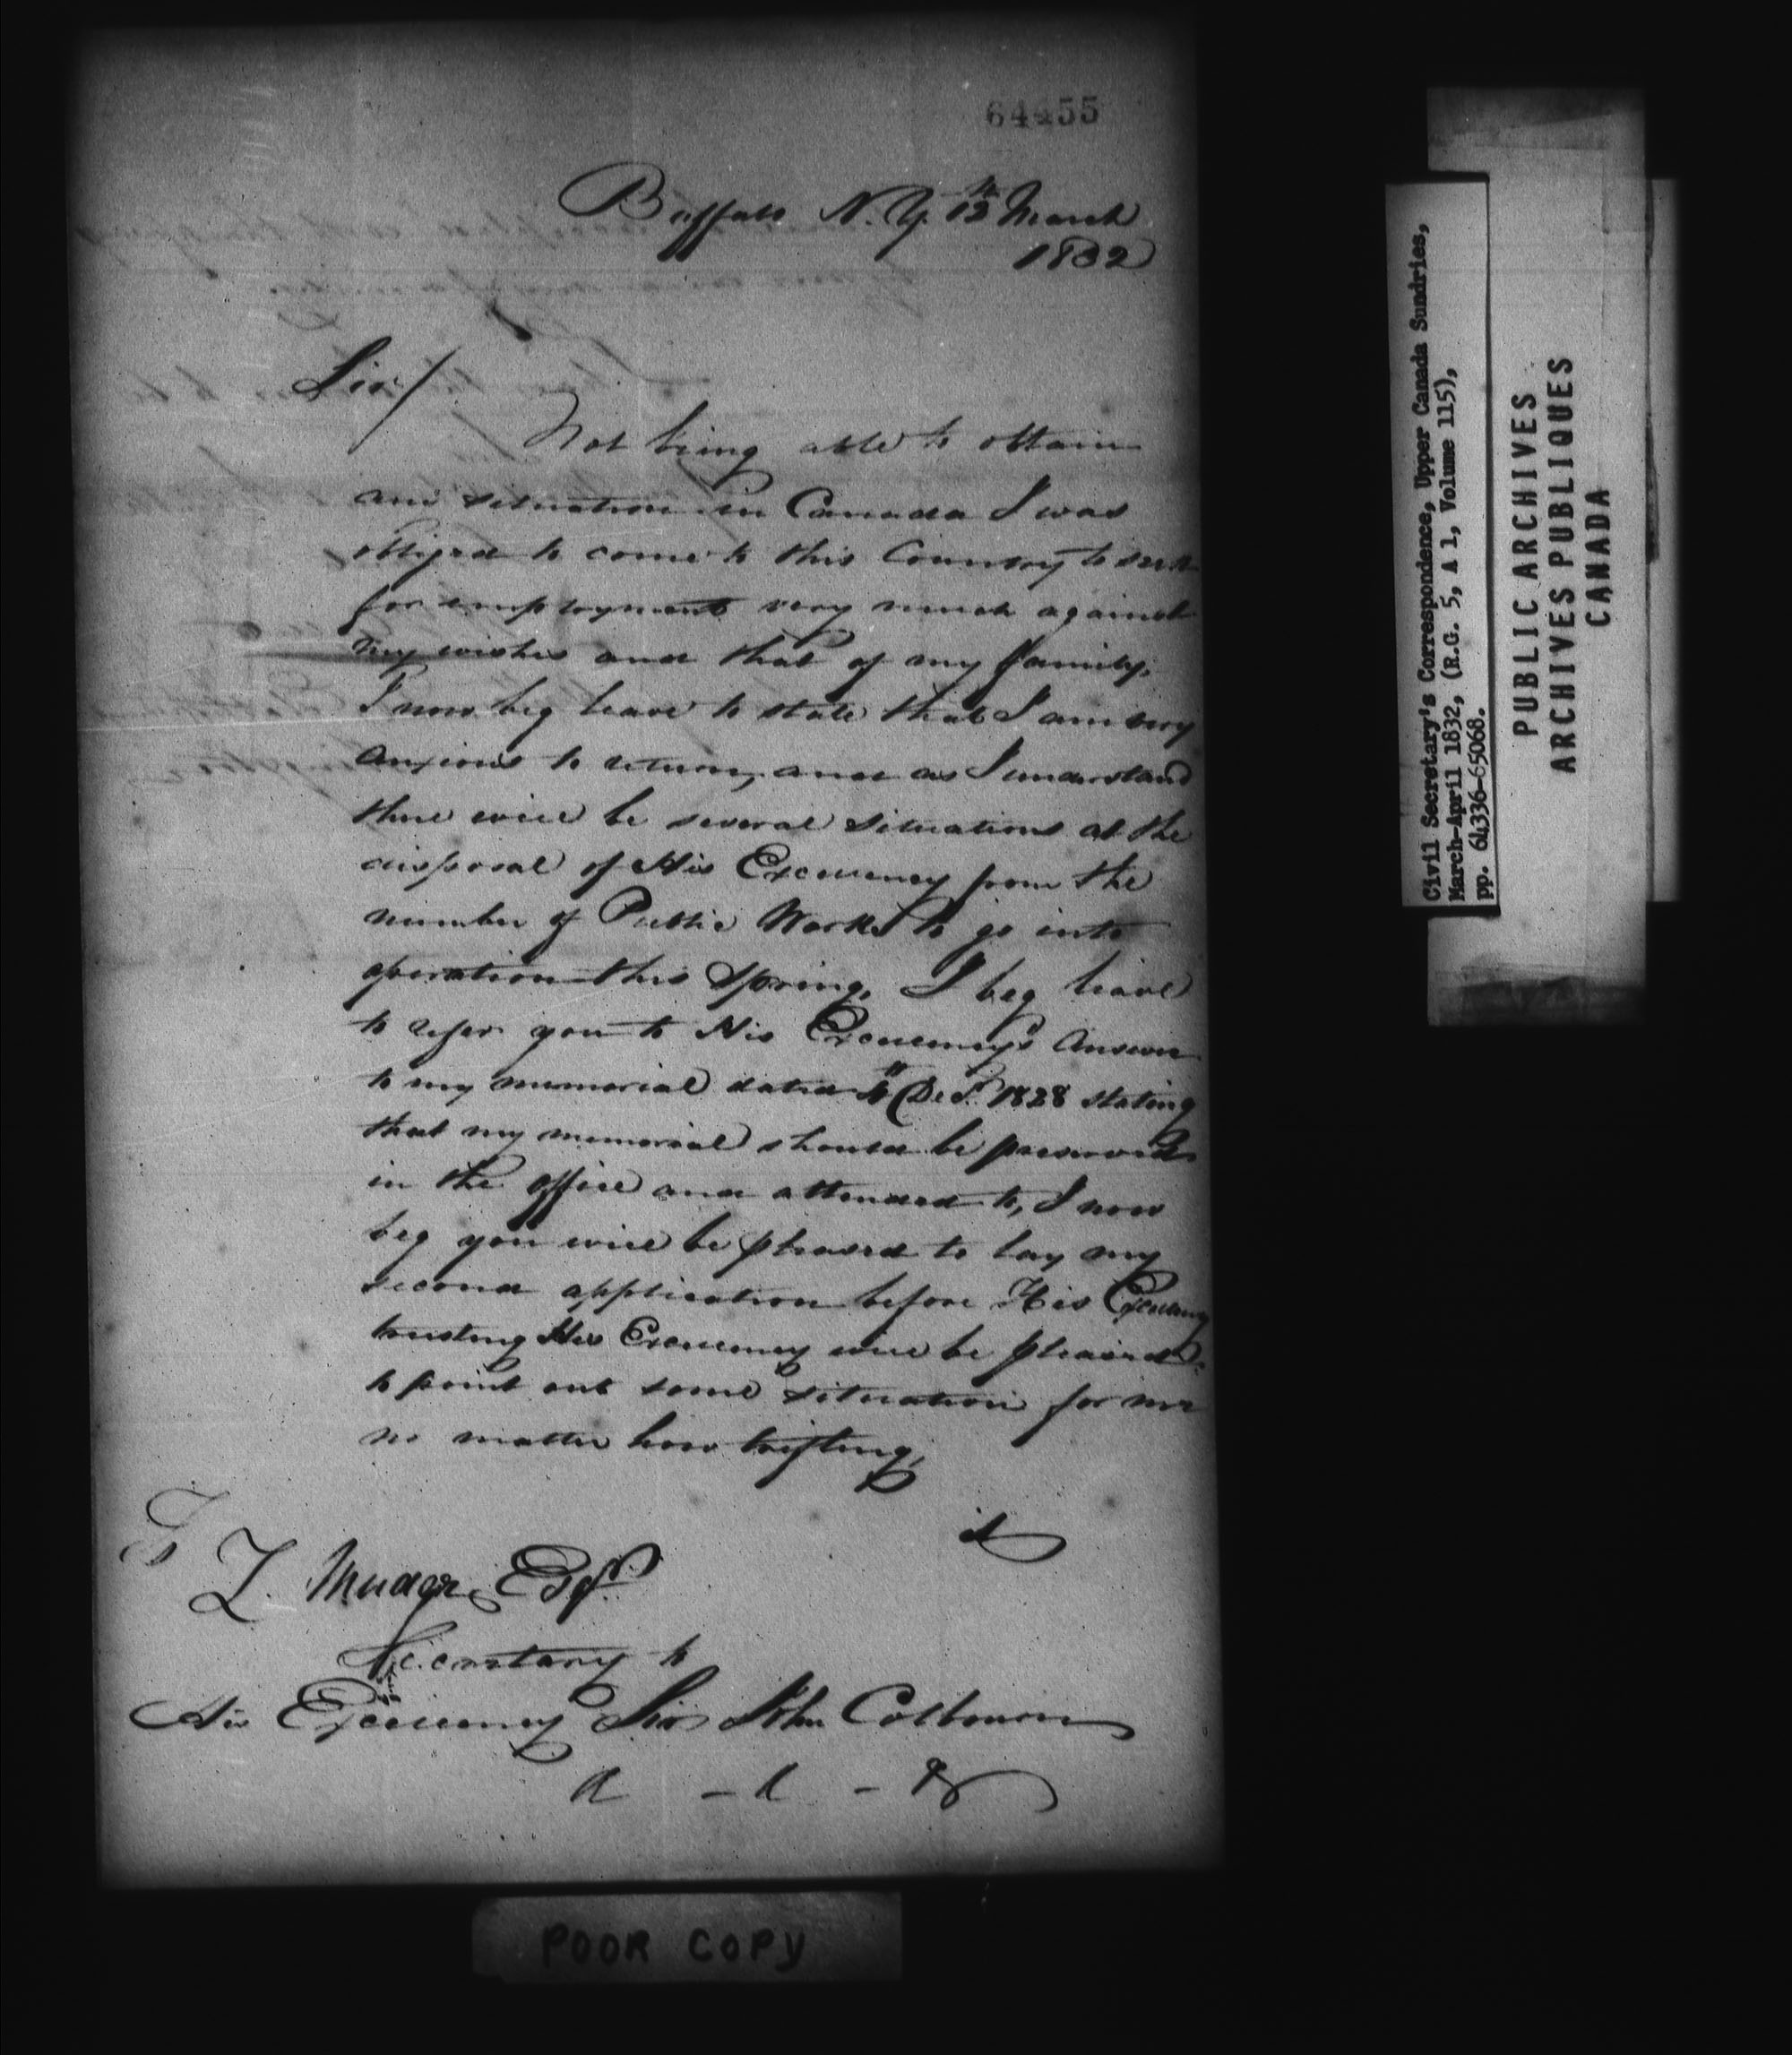 64455
Buffalo N. Y. 12th March
1832
Sir/
Not being able to obtain
any situation in Canada I was
obliged to come to this Country to seek
for employment very much against
my wishes and that of my family.
I now beg leave to state that I am very
anxious to return, and as I understand
there will be several situations at the
disposal of His Excellency from the
number of Public Works to go into
operation this Spring, I beg leave
to refer you to His Excellency's Answer
to my memorial dated Decr. 1828 stating
that my memorial should be preserved
in the office and attended to, I now
beg you will be pleased to lay my
second application before His Excellency
trusting His Excellency will be pleased
to point out some situation for me
no matter how trifling,
To
Z. Mudge Esqr.
Secretary to
His Excellency Sir John Colborne
&c - &c - &c
POOR COPY
Civil Secretary's Correspondence, Upper Canada Sundries,
March-April 1832, (R.G. 5, A 1, Volume 115),
pp. 64336-65068.
PUBLIC ARCHIVES
ARCHIVES PUBLIQUES
CANADA